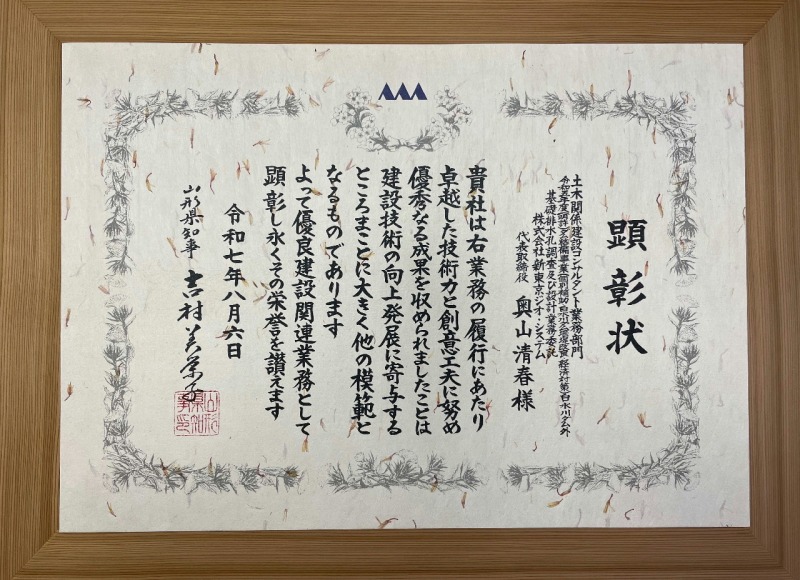 顕彰状
土木関係建設コンサルタント業務部門
基礎排水孔調査及び設計業務委託
株式会社新東京ジオ・システム
代表取締役 奥山清春様
貴社は右業務の履行にあたり
卓越した技術力と創意工夫に努め
優秀なる成果を収められましたことは
建設技術の向上発展に寄与する
ところまことに大きく他の模範と
なるものであります
よって優良建設関連業務として
顕彰し永くその栄誉を讃えます
令和七年八月六日
山形県知事 吉村美栄子